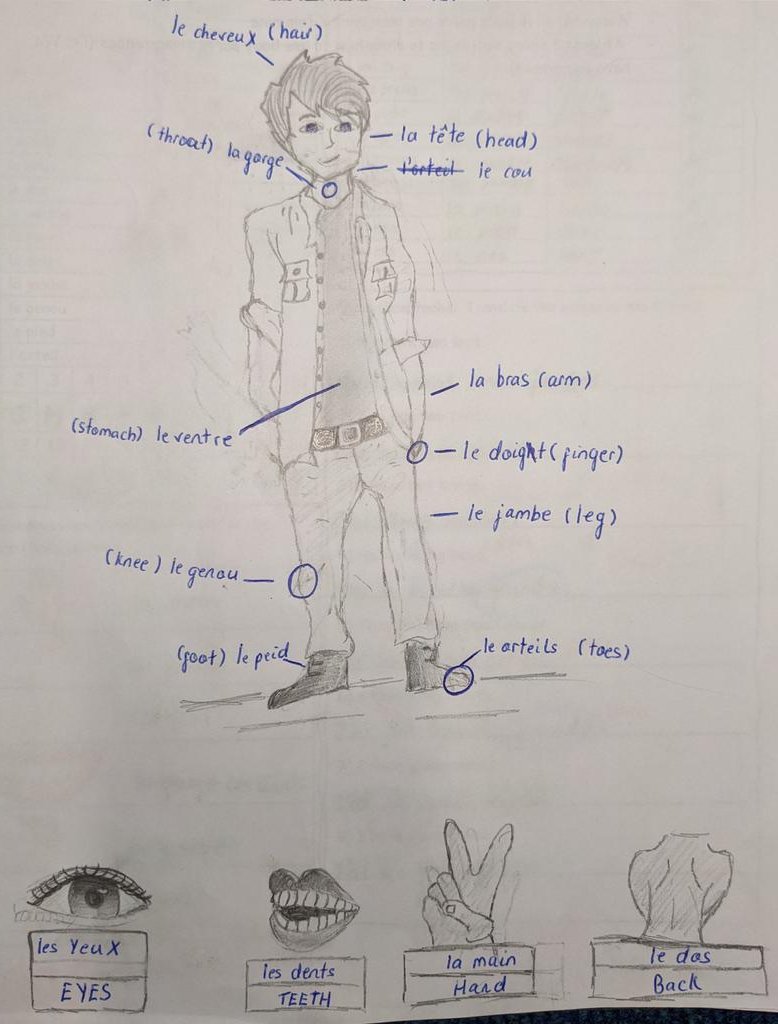 le cheveux (hair)
(throat) la gorge
la tête (head)
l'orteil le cou
la bras (arm)
(stomach) le ventre
le doight (finger)
le jambe (leg)
(knee) le genou
(foot) le peid
le orteils (toes)
les Yeux
EYES
les dents
TEETH
la main
Hand
le dos
Back